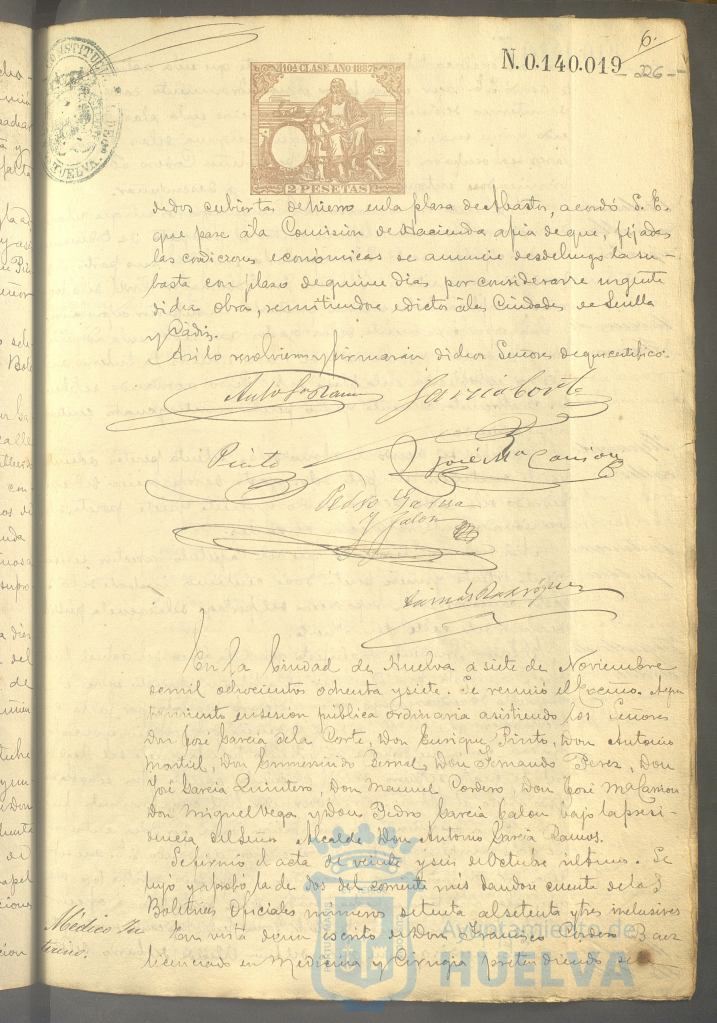 6.
N. 0.140.019
226
CONSTITUCI
HUELVA
10ª CLASE. AÑO 1887
2 PESETAS
de dos cubiertas de hierro en la plaza de Abastos, acordó S. E.
que pase á la Comision de Hacienda afin de que, fijadas
las condiciones económicas se anuncie desde luego la su-
basta con plazo de quince dias por considerarse urgente
dicha obra, remitiendose edictos á las Ciudades de Sevilla
y Cádiz.
Asi lo resolvieron y firmarán dichos Señores de que certifico.
García Corte
Pinto
José Mª Carrion
Pedro Garcia
y Jalon
Tomás Rodriguez
En la Ciudad de Huelva a siete de Noviembre
de mil ochocientos ochenta y siete. Se reunió el Excmo. Ayun
tamiento en sesión pública ordinaria asistiendo los Señores
Don José García de la Corte, Don Enrique Pinto, Don Antonio
Montiel, Don Bernal, Don Fernando Perez, Don
José García Quintero, Don Manuel Cordero, Don José Mª Carrion
Don Miguel Vega y Don Pedro García Jalon bajo la presi-
dencia del Señor Alcalde Don Antonio García Ramos.
Se firmó el acta de veinte y seis de Octubre último. Se
leyó y aprobó la de dos del corriente mes dandose cuenta de los
Boletines Oficiales números setenta al setenta y tres inclusives
Médico In
terino.
En vista de un escrito de Don Francisco Cordero Baez
licenciado en Medicina y Cirugia pretendiendo se
Ayuntamiento de
HUELVA